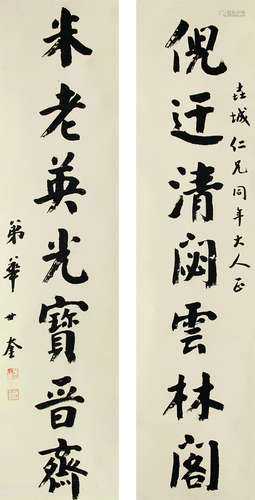 城仁兄同年大人正
倪迂清閟雲林閣
米老英光寶晋齋
弟華世奎